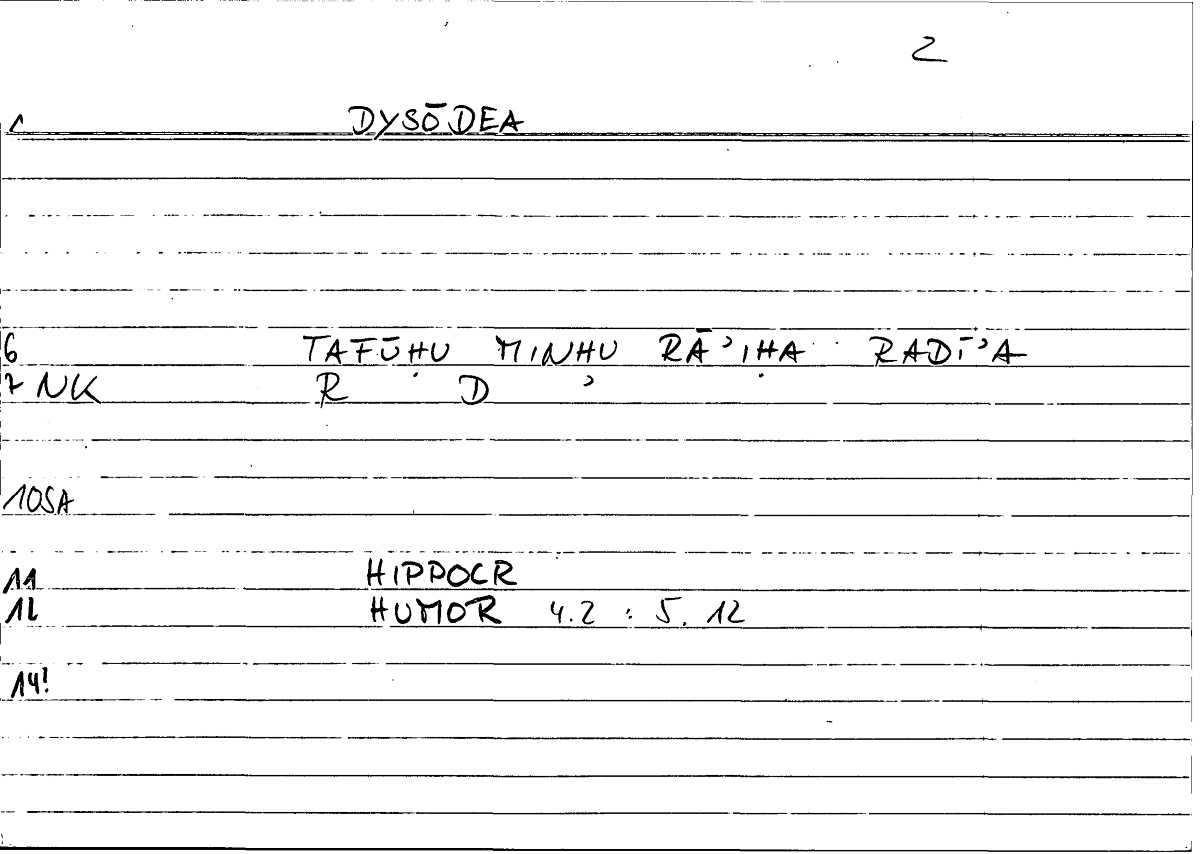 2
1 DYSŌDEA
6 TAFŪHU MINHU RĀʾIḤA RADĪʾA
7 NK R D ʾ
10SA
11 HIPPOCR
12 HUMOR 4.2 : 5. 12
14!